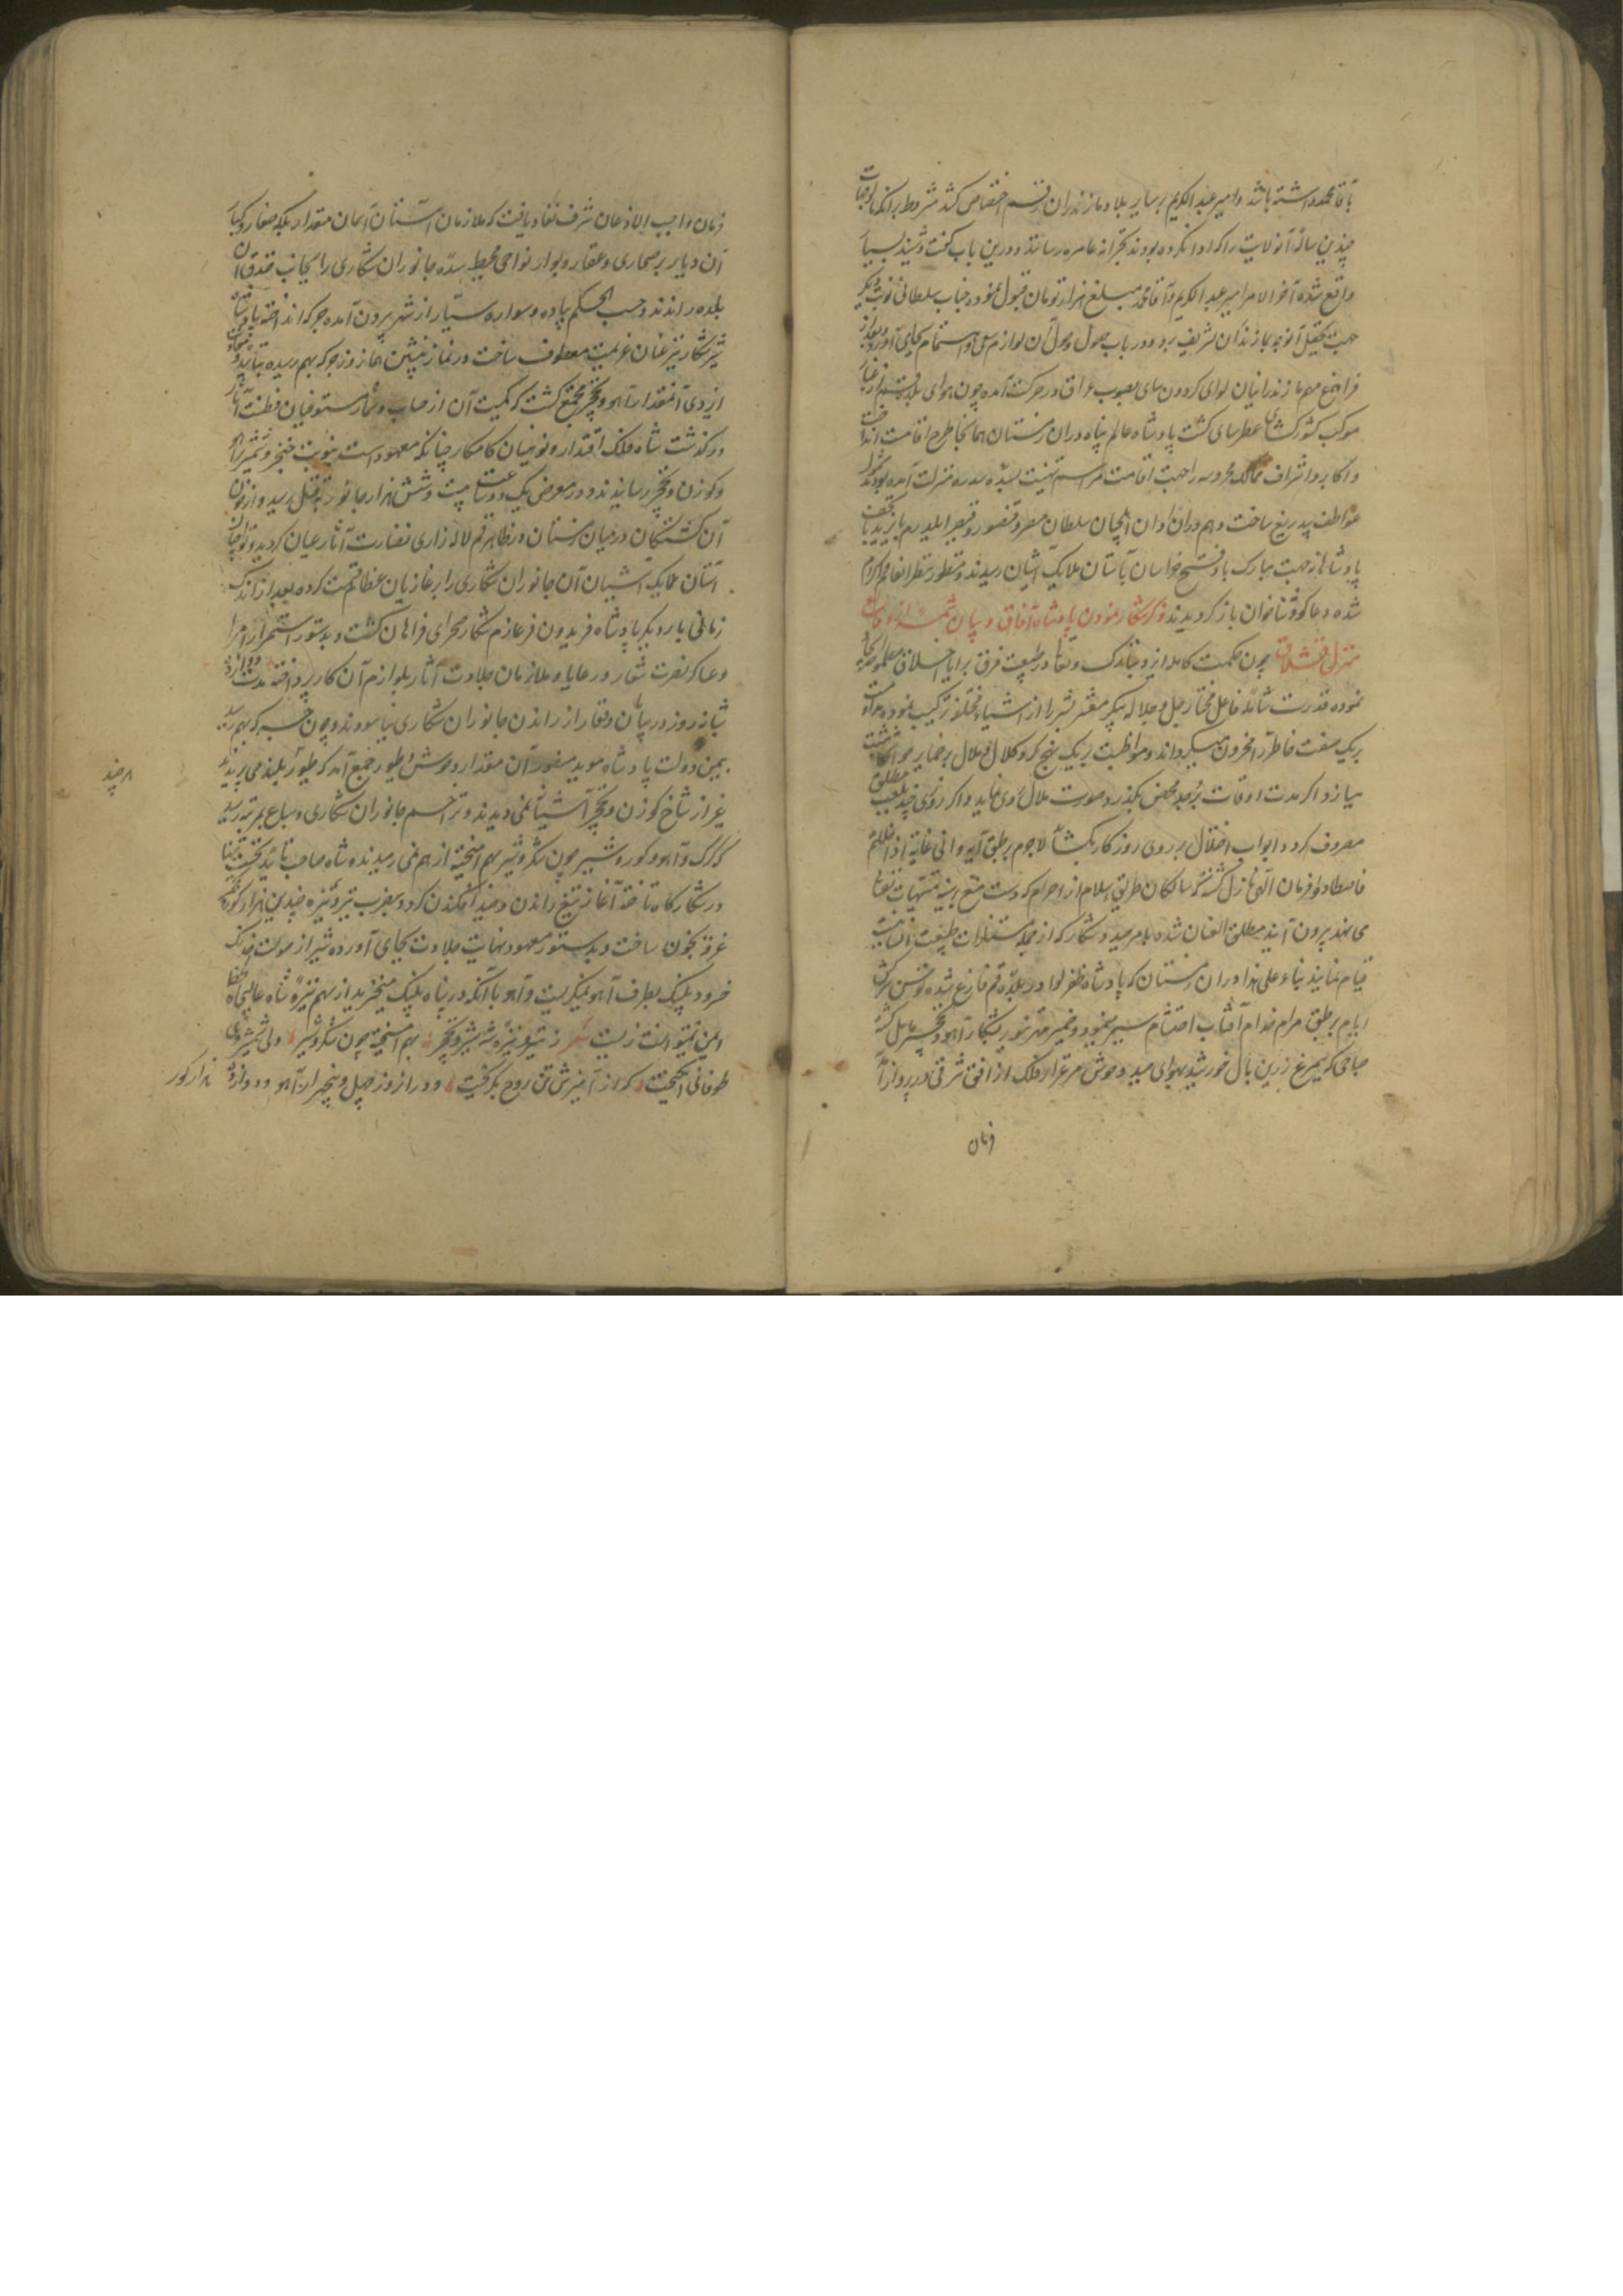 بآقا محمد داشته باشد و امیر عبد الکریم بر سایر بلاد مازندران رقم اختصاص کشد مشروط برانکه مالوجهات
چندین ساله آنولایت را که ادا نکرده بودند بخزانه عامره رسانند و درین باب گفت و شنید بسیار
واقع شده آخر الامر امیر عبد الکریم و آقا محمد مبلغ هزار تومان قبول نموده جناب سلطانی نوبت دیگر
جهت تحصیل آنوجه بمازندران تشریف برد و در باب حصول وصول آن لوازم سعی و اهتمام بجای آورد و بعد از
فراغ مهم مازندرانیان لوای کردون سای بصوب عراق در حرکت آمده چون هوای بلده قم از غبار
موکب کشورکشای عطرسای کشت پادشاه عالم پناه دران زمستان همانجا طرح اقامت انداخت
و اکابر و اشراف ممالک محروسه را جهت اقامت مراسم تهنیت بسده سدره منزلت آمده بودند مشمول
عواطف بیدریغ ساخت و هم دران اوان ایلچیان سلطان مصر قنسو و قیصر ایلدرم بایزید با تحف
پادشاهانه جهت مبارک باد فتح خراسان بآستان ملایک آشیان رسیدند و منظور نظر انعام و اکرام
شده دعا گوی و ثناخوان باز کردیدند ذکر شکار نمودن پادشاه آفاق و بیان شمه از وقایع
منزل قشلاق چون حکمت کامله ایزد تبارک و تعالی در طبیعت فرق برایا اختلاف
نموده قدرت شامله فاعل مختار جل جلاله پیکر معشر بشر را از اشیاء مختلفه ترکیب نموده مداومت
بر یک صفت خاطر را محزون میکرداند و مواظبت بر یک نهج کرد کلال و ملال بر رخسار
میسازد اکر مدت اوقات بر جد محض بگذرد صورت ملال روی نماید و اکر روزی چند بلعب مطلق
مصروف کردد ابواب اختلال بر روی روزکار بکشاید لاجرم بر طبق آیه وافی غایه اذا حللتم
فاصطادوا فرمان الهی نازل کشته که سالکان طریق اسلام از احرام که دست منع
می نهد بیرون آیند مطلق العنان شده بامر صید و شکار که از جمله مستلذات طبیعت انسانیست
قیام نمایند بناء علی هذا دران زمستان که پادشاه ظفر لوا در بلده قم فارغ شده توسن سرکش
ایام بر طبق مرام خدام آفتاب احتشام سیر می نمود و ضمیر مهر تنویر بشکار آهو و نخجیر مایل کشته
صباحی که سیمرغ زرین بال خورشید بهوای صید وحوش مرغزار فلک از افق شرقی در پرواز آمد
فرمان
فرمان واجب الاذعان شرف نفاذ یافت که ملازمان آستان آسمان مقدار بلکه صغار و کبار
آن دیار بر صحاری و عقار و بوار نواحی محیط شده جانوران شکاری را بجانب خندق آن
بلده راندند و حسب الحکم پیاده و سواره بسیار از شهر بیرون آمده جرکه انداختند پادشاه
شیرشکار نیز عنان عزیمت معطوف ساخت و نماز پیشین همان روز جرکه بهم رسیده بتأیید
ایزدی آنمقدار آهو و نخجیر مجتمع کشت که کمیت آن از حساب و شمار مستوفیان فطنت آثار
درکذشت شاه فلک اقتدار و نوئینان کامکار چنانکه معهودست بنوبت خنجر و شمشیر بر آهو
و کوزن و نخجیر رسانیدند و در معرض یک دو ساعت بیست و شش هزار جانور بقتل رسید و از خون
آن کشتکان در میان زمستان در ظاهر قم لاله زاری نضارت آثار عیان کردید و نوابچیان
آستان ملایک آشیان آن جانوران شکاری را بر غازیان عظام قسمت کرده بعد از اندک
زمانی بار دیگر پادشاه فریدون فر عازم شکار صحرای فراهان کشت و بدستور استمرار امرا
و عساکر نصرت شعار و رعایا و ملازمان جلادت آثار بلوازم آن کار پرداختند مدت دوازده
شبانه روز در بیابان و قفار از راندن جانوران شکاری نیاسودند و چون جرکه بهم رسید
بیمن دولت پادشاه موید منصور آن مقدار وحوش و طیور جمع آمد که طیور بلند می پریدند
غیر از شاخ کوزن و نخجیر آشیانی نمی دیدند و تراکم جانوران شکاری و سباع بمرتبه رسید
که کرک و آهو و کور و شیر چون شکر و شیر بهم آمیخته از هم نمی رمیدند شاه صاحب تأیید
در شکارکاه تاخته آغاز تیغ راندن و صید افکندن کرد و بضرب تیر و نیزه چندین هزار
غرق بخون ساخت و بدستور معهود نهایت جلادت بجای آورده شیر از صولت خدنک
خسرو پلنک بطرف آهو نمی نکریست و آهو با آنکه در پناه پلنک میخزید از سهم نیزه شاه عالیجاه
ایمن نمیتوانست زیست شعر ز تیر و نیزه شه شیر و نخجیر بهم آمیخته چون شکر و شیر ولی شمشیر
طوفانی انگیخت که از آمیزش تن روح بگریخت و در ان روز چهل و پنج هزار آهو و دوازده هزار کور